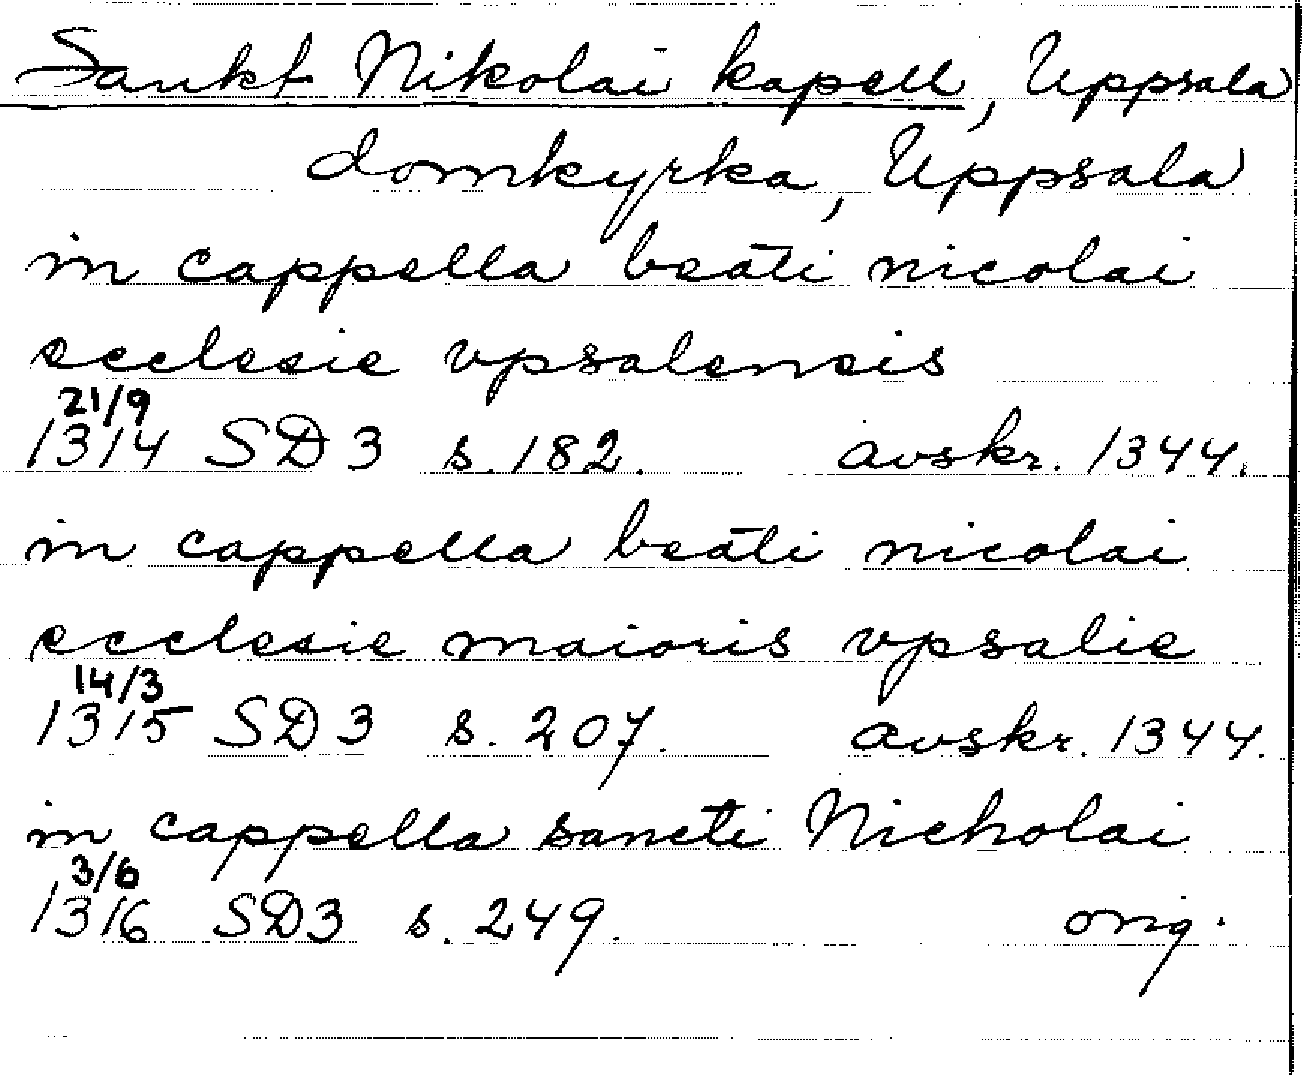 Sankt Nikolai kapell, Uppsala
domkyrka, Uppsala
in cappella beati nicolai
ecclesie vpsalensis
21/9
1314 SD 3 s. 182. avskr. 1344.
in cappella beati nicolai
ecclesie maioris vpsalie
14/3
1315 SD 3 s. 207. avskr. 1344.
in cappella sancti Nicholai
3/6
1316 SD3 s. 249. orig.